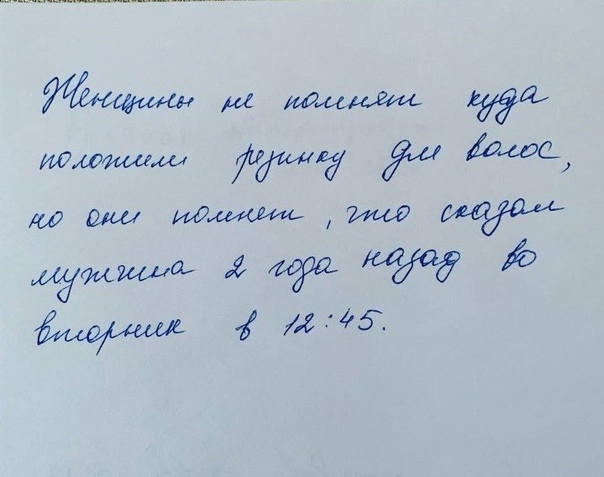 Женщины не помнят куда
положили резинку для волос,
но они помнят, что сказал
мужчина 2 года назад во
вторник в 12:45.